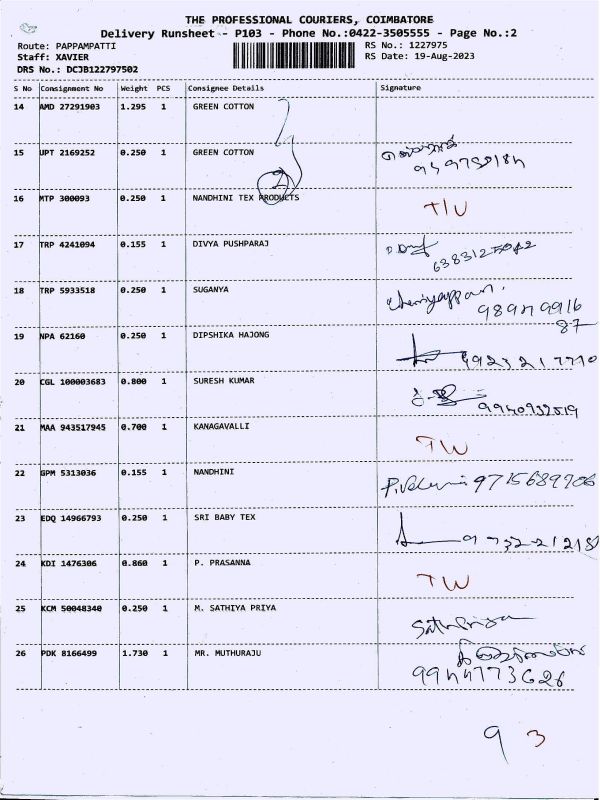 THE PROFESSIONAL COURIERS, COIMBATORE
Delivery Runsheet - P103 - Phone No.:0422-3505555 - Page No.:2
Route: PAPPAMPATTI
RS No.: 1227975
Staff: XAVIER
RS Date: 19-Aug-2023
DRS No.: DCJB122797502
S No Consignment No Weight PCS Consignee Details Signature
14 AMD 27291903 1.295 1 GREEN COTTON
15 UPT 2169252 0.250 1 GREEN COTTON
2
16 MTP 300093 0.250 1 NANDHINI TEX PRODUCTS T/U
17 TRP 4241094 0.155 1 DIVYA PUSHPARAJ
18 TRP 5933518 0.250 1 SUGANYA
19 NPA 62160 0.250 1 DIPSHIKA HAJONG
20 CGL 100003683 0.800 1 SURESH KUMAR
21 MAA 943517945 0.700 1 KANAGAVALLI
22 GPM 5313036 0.155 1 NANDHINI 9715689706
23 EDQ 14966793 0.250 1 SRI BABY TEX
24 KDI 1476306 0.860 1 P. PRASANNA
25 KCM 50048340 0.250 1 M. SATHIYA PRIYA
26 PDK 8166499 1.730 1 MR. MUTHURAJU
9 3